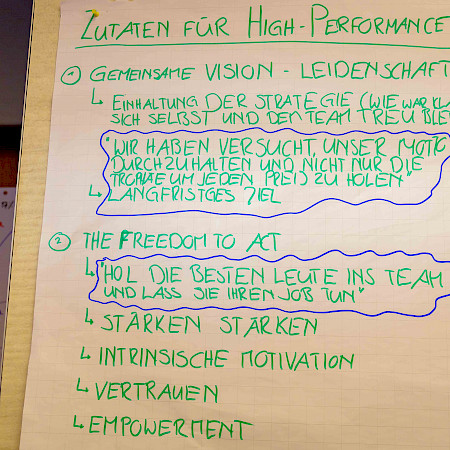 ZUTATEN FÜR HIGH-PERFORMANCE
① GEMEINSAME VISION - LEIDENSCHAFT
↳ EINHALTUNG DER STRATEGIE (WIE WAR KLA
SICH SELBST UND DEM TEAM TREU BLE
"WIR HABEN VERSUCHT, UNSER MOTTO
DURCHZUHALTEN UND NICHT NUR DIE
TROPHÄE UM JEDEN PREIS ZU HOLEN"
↳ LANGFRISTGES ZIEL
② THE FREEDOM TO ACT
↳ "HOL DIE BESTEN LEUTE INS TEAM
UND LASS SIE IHREN JOB TUN"
↳ STÄRKEN STÄRKEN
↳ INTRINSISCHE MOTIVATION
↳ VERTRAUEN
↳ EMPOWERMENT